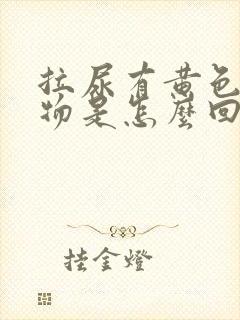 拉尿有黄色
物是怎麼回
挂金燈